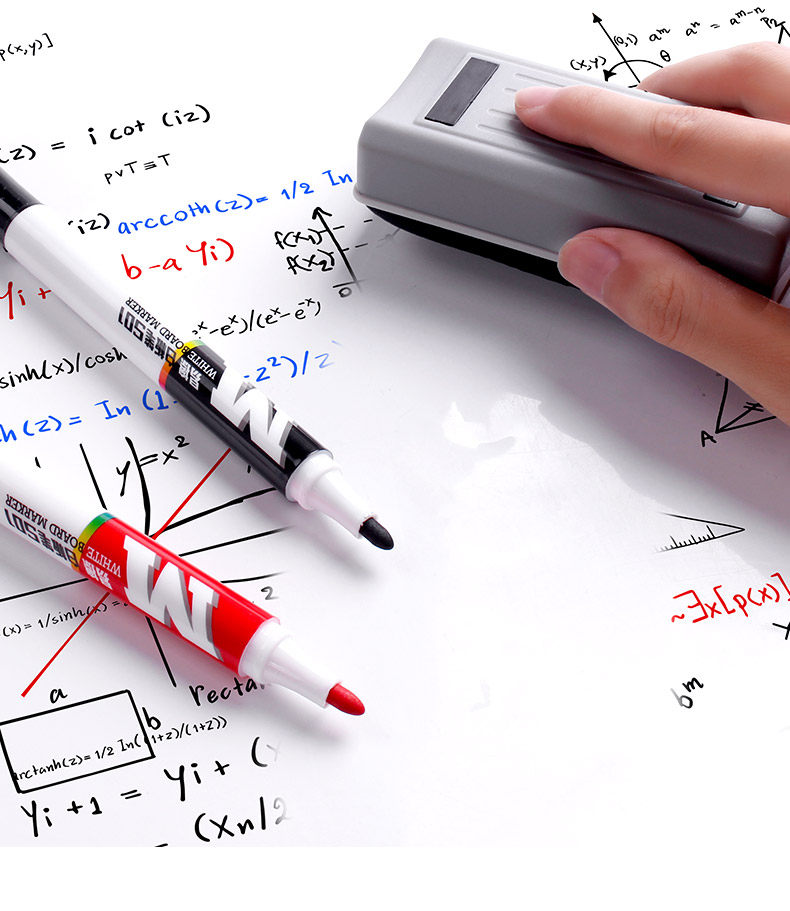 p(x,y)]
(0,1) a^m a^n = a^m-n
P2
(x,y) θ
(z) = i cot (iz)
pvT ≡ T
iz) arccoth(z)= 1/2 In
f(x1)
b-a Yi)
f(x2)
Yi +
0
-e^x)/(e^x-e^-x)
BOARD MARKER
WHITE
M
sinh(x)/cosh
h(z)= In (1-z²)/z
y=x²
A
BOARD MARKER
WHITE
M
~∃x[p(x)]
2
(x) = 1/sinh(x) =
a
b^m
recta
b
arctanh(z)= 1/2 In((1+z)/(1+z))
Yi +1 = Yi + (
= (Xn/2